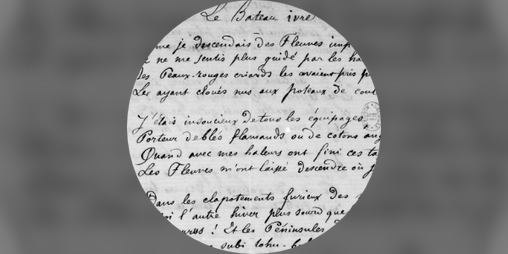 Le Bateau ivre
me je descendais des Fleuves imp
ne me sentis plus guidé par les ha
des Peaux-rouges criards les avaient pris p
Les ayant cloués nus aux poteaux de coul
J'étais insoucieux de tous les équipages,
Porteur de blés flamands ou de cotons ang
Quand avec mes haleurs ont fini ces ta
Les Fleuves m'ont laissé descendre où j
Dans les clapotements furieux des
l'autre hiver plus sourd que
! Et les Péninsules
subi tohu-